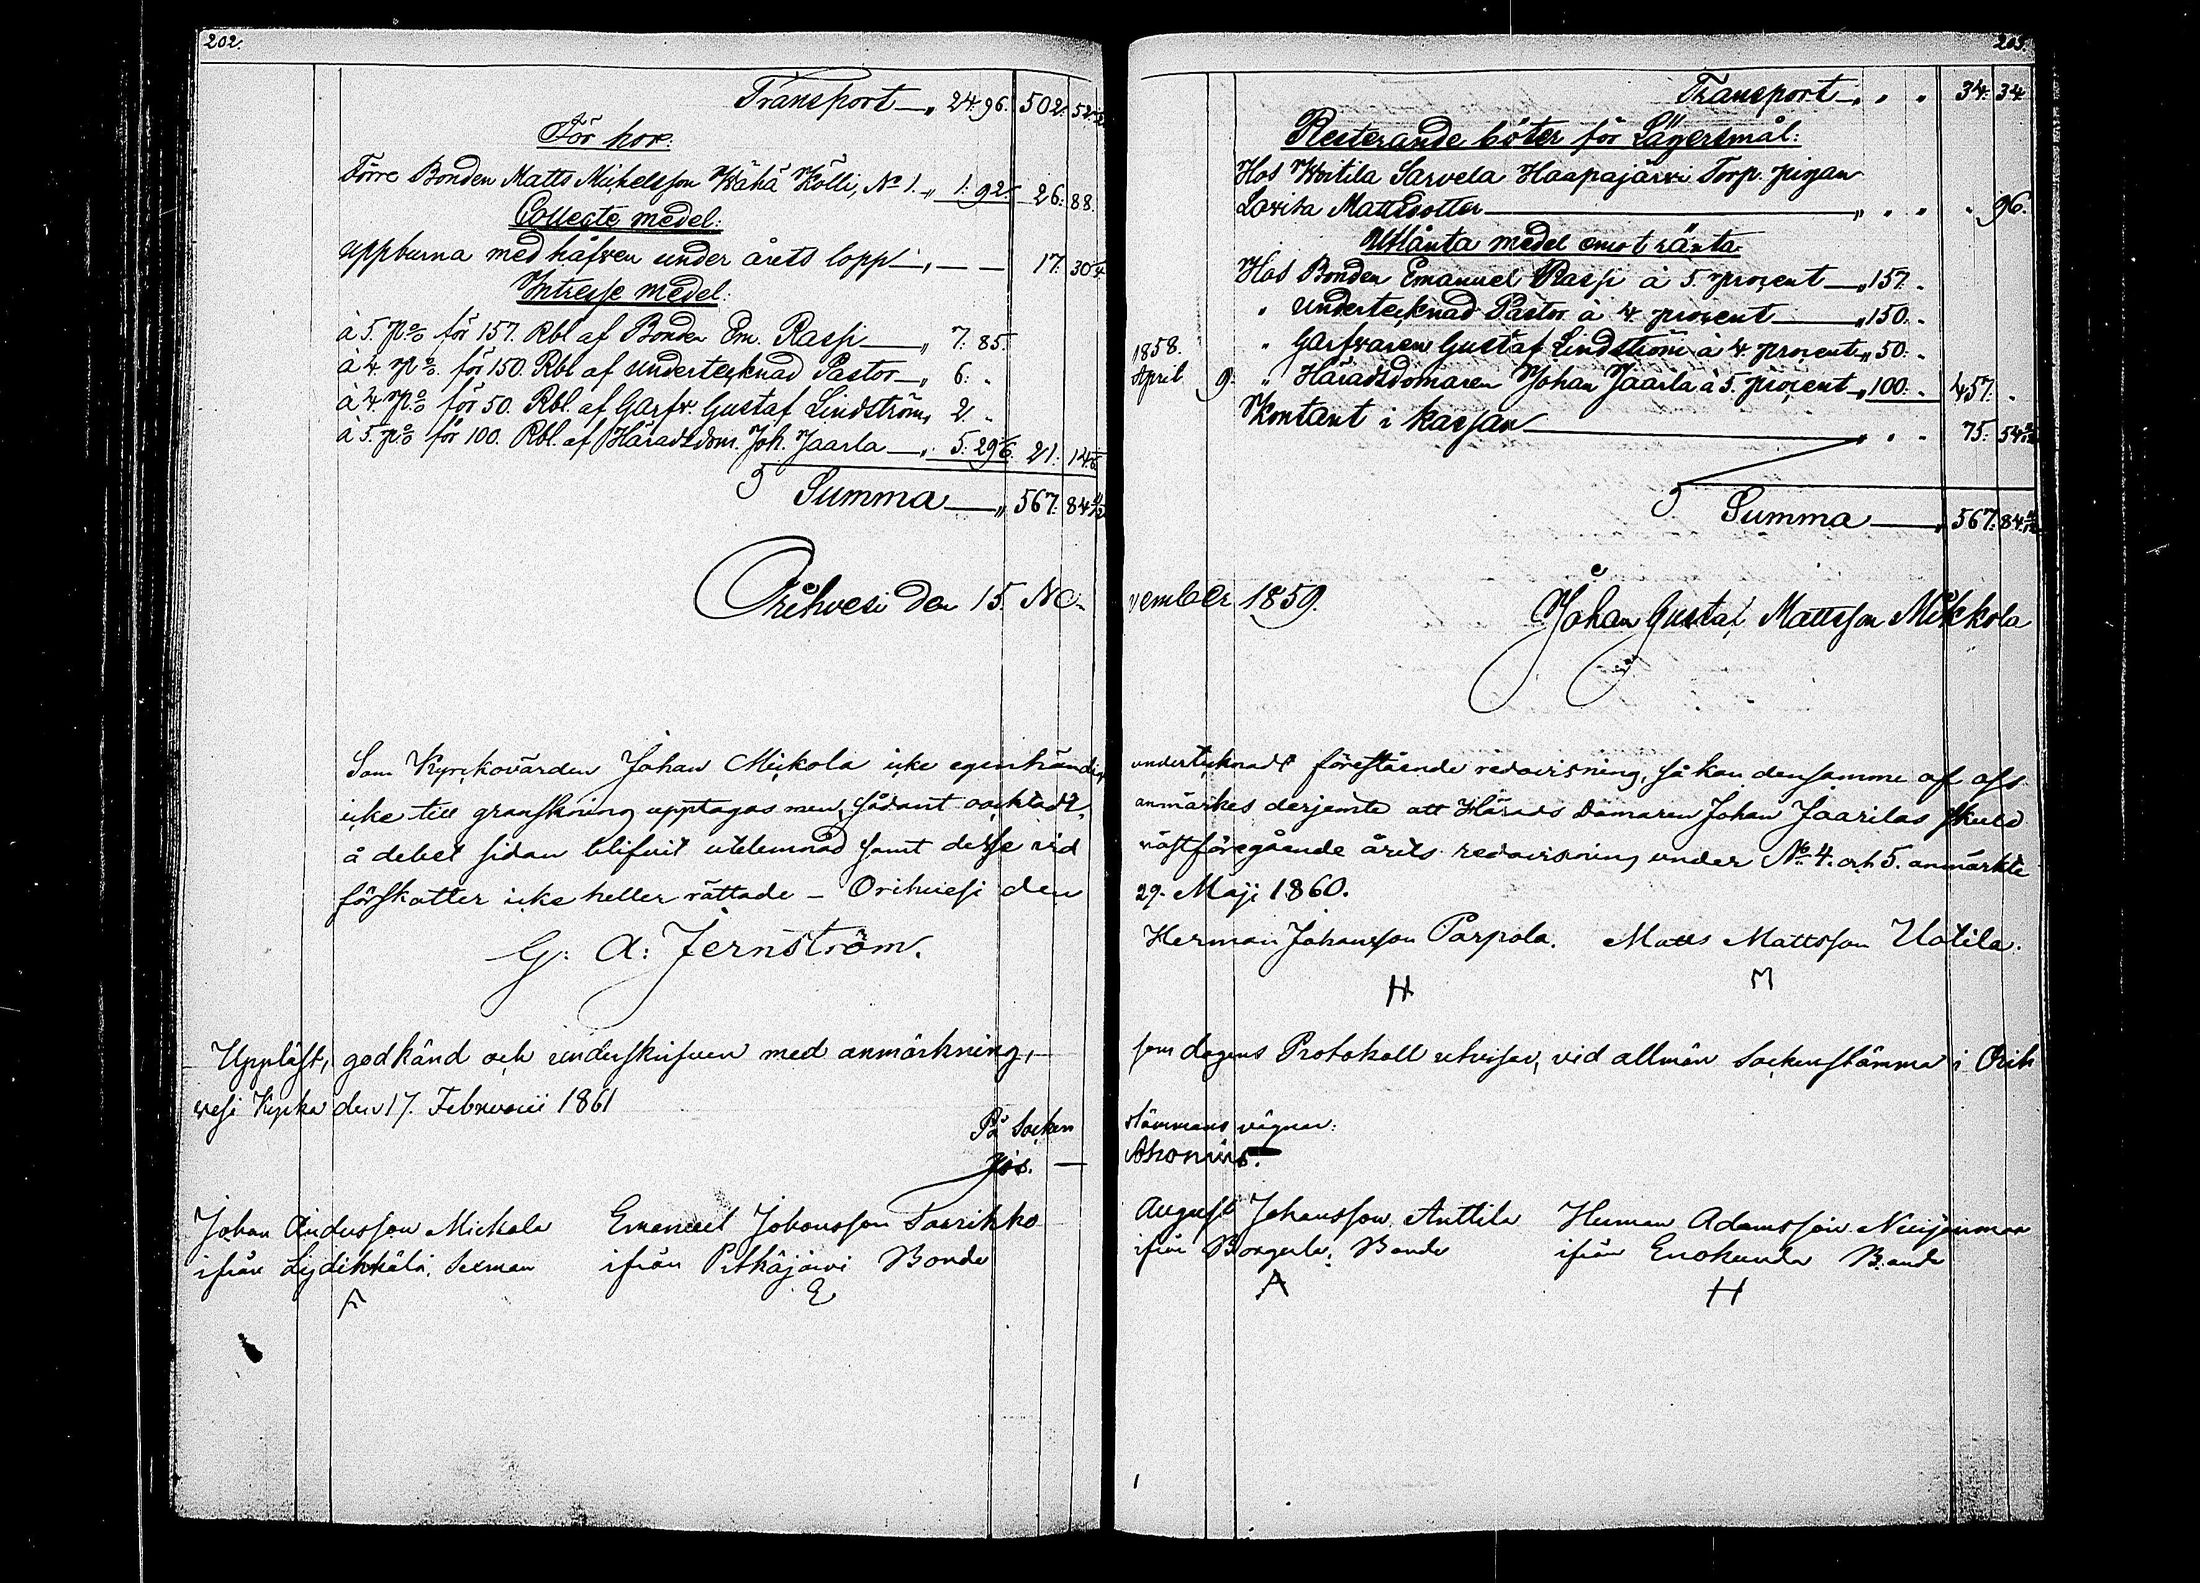 202.
Transport — „ 24. 96. 502. 52
För hor:
Förre Bonden Matts Mickelsson Wähä Kölli, No 1. „ 1: 92. 26: 88.
Collecte medel:
uppburna med håfven under årets lopp — „ — — 17. 30
Intresse medel:
à 5. p% för 157. Rbl af Bonden Em. Rassi — „ 7: 85.
à 4. p%. för 150. Rbl af undertecknad Pastor — „ 6: „
à 4. p% för 50. Rbl. af Garfv. Gustaf Lindström „ 2. „
à 5. p% för 100. Rbl. af Häradsdom. Joh. Jaarla — „ 5: 29 21: 14
Summa — „ 567: 84
Orihvesi den 15. No-
Som Kyrckovärden Johan Mickola icke egenhändigt
icke till granskning upptagas men, sådant oacktadt,
å debet sidan blifvit utelemnad samt desse vid
förskotter icke heller rättade — Orihvesi den
G: A: Jernström.
Uppläst, godkänd och underskrifven med anmärkning,
vesi Kyrka den 17. Februarii 1861
På Socken
Johan Andersson Mickola Emanuel Johansson Saarikko
ifrån Lydikkälä, Sexman ifrån Pitkäjärvi Bonde
E
203.
Transport — „ „ „ 34: 34
Resterande böter för Lägersmål:
Hos Woitila Sarvela Haapajärvi Torp. pigan
Lovisa Mattsdotter — „ „ „ „ 96.
Utlånta medel emot ränta
Hos Bonden Emanuel Rassi à 5. procent — „ 157. „
„ undertecknad Pastor à 4 procent — „ 150. „
1858. „ Garfvaren Gustaf Lindström à 4. procent „ 50: „
April 9. „ Häradsdomaren Johan Jaarla à 5. procent „ 100: „ 457. „
Kontant i kassan — „ „ „ 75: 54
Summa — „ 567: 84
vember 1859.
Johan Gustaf Mattsson Mikkola
undertecknadt förestående redovisning, så kan densamme af oss
anmärkes derjemte att Härads Domaren Johan Jaarilas skuld
nästföregående årets redovisning under No 4. och 5. anmärkte
29. Maji 1860.
Herman Johansson Parpola. Matts Mattsson Uotila.
H M
som dagens Protokoll utvisar, vid allmän Sockenstämma i Orih
stämmans vägnar:
August Johansson Anttila Herman Adamsson
ifrån Bonde ifrån Enokunda Bonde
A H